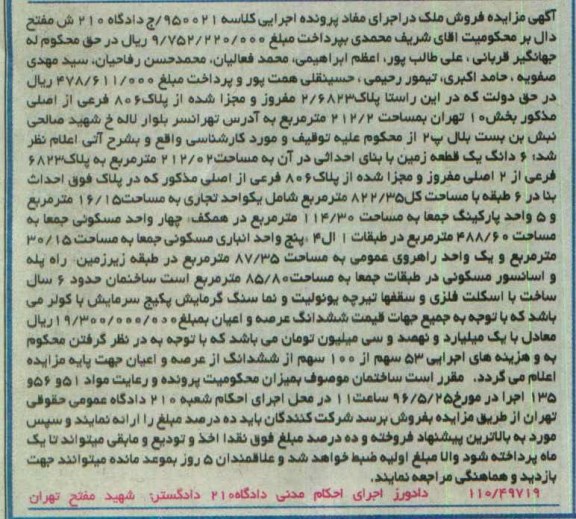 آگهی مزایده فروش ملک در اجرای مفاد پرونده اجرایی کلاسه ۹۵۰۰۲۱/ج دادگاه ۲۱۰ ش مفتح
دال بر محکومیت اقای شریف محمدی بپرداخت مبلغ ۹/۷۵۲/۲۲۰/۰۰۰ ریال در حق محکوم له
جهانگیر قربانی ، علی طالب پور، اعظم ابراهیمی، محمد فعالیان، محمدحسن رفاحیان، سید مهدی
صفویه ، حامد اکبری، تیمور رحیمی ، حسینقلی همت پور و پرداخت مبلغ ۴۷۸/۶۱۱/۰۰۰ ریال
در حق دولت که در این راستا پلاک۲/۶۸۲۳ مفروز و مجزا شده از پلاک۸۰۶ فرعی از اصلی
مذکور بخش۱۰ تهران بمساحت ۲۱۲/۲ مترمربع به آدرس تهرانسر بلوار لاله خ شهید صالحی
نبش بن بست بلال پ۲ از محکوم علیه توقیف و مورد کارشناسی واقع و بشرح آتی اعلام نظر
شد: ۶ دانگ یک قطعه زمین با بنای احداثی در آن به مساحت۲۱۲/۰۲ مترمربع به پلاک۶۸۲۳
فرعی از ۲ اصلی مفروز و مجزا شده از پلاک۸۰۶ فرعی از اصلی مذکور که در پلاک فوق احداث
بنا در ۶ طبقه با مساحت کل۸۲۲/۳۵ مترمربع شامل یکواحد تجاری به مساحت۱۶/۱۵ مترمربع
و ۵ واحد پارکینگ جمعا به مساحت ۱۱۴/۳۰ مترمربع در همکف، چهار واحد مسکونی جمعا به
مساحت ۴۸۸/۶۰ مترمربع در طبقات ۱ ال۴ ،پنج واحد انباری مسکونی جمعا به مساحت ۳۰/۱۵
مترمربع و یک واحد راهروی عمومی به مساحت ۸۷/۳۵ مترمربع در طبقه زیرزمین، راه پله
و اسانسور مسکونی در طبقات جمعا به مساحت۸۵/۸۰ مترمربع است ساختمان حدود ۶ سال
ساخت با اسکلت فلزی و سقفها تیرچه یونولیت و نما سنگ گرمایش پکیج سرمایش با کولر می
باشد که با توجه به جمیع جهات قیمت ششدانگ عرصه و اعیان بمبلغ۱۹/۳۰۰/۰۰۰/۰۰۰ریال
معادل با یک میلیارد و نهصد و سی میلیون تومان می باشد که با توجه به در نظر گرفتن محکوم
به و هزینه های اجرایی ۵۳ سهم از ۱۰۰ سهم از ششدانگ از عرصه و اعیان جهت پایه مزایده
اعلام می گردد، مقرر است ساختمان موصوف بمیزان محکومیت پرونده و رعایت مواد ۵۱و ۵۶و
۱۳۵ اجرا در مورخ۹۶/۵/۲۵ ساعت۱۱ در محل اجرای احکام شعبه ۲۱۰ دادگاه عمومی حقوقی
تهران از طریق مزایده بفروش برسد شرکت کنندگان باید ده درصد مبلغ را ارائه نمایند و سپس
مورد به بالاترین پیشنهاد فروخته و ده درصد مبلغ فوق نقدا اخذ و تودیع و مابقی میتواند تا یک
ماه پرداخته شود والا مبلغ اولیه ضبط خواهد شد و علاقمندان ۵ روز بموعد مانده میتوانند جهت
بازدید و هماهنگی مراجعه نمایند.
۱۱۰/۴۹۷۱۹ دادورز اجرای احکام مدنی دادگاه۲۱۰ دادگستر: شهید مفتح تهران